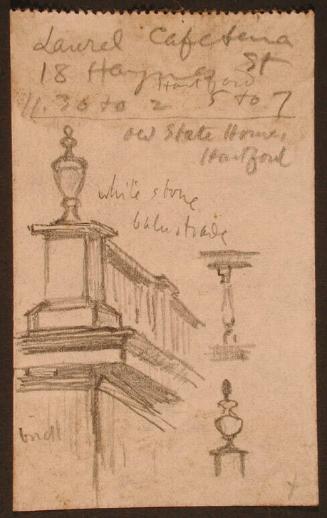 Laurel Cafeteria
18 Haynes St
Hartford
11.30 to 2 5 to 7
Old State House,
Hartford
white stone
balustrade
brick